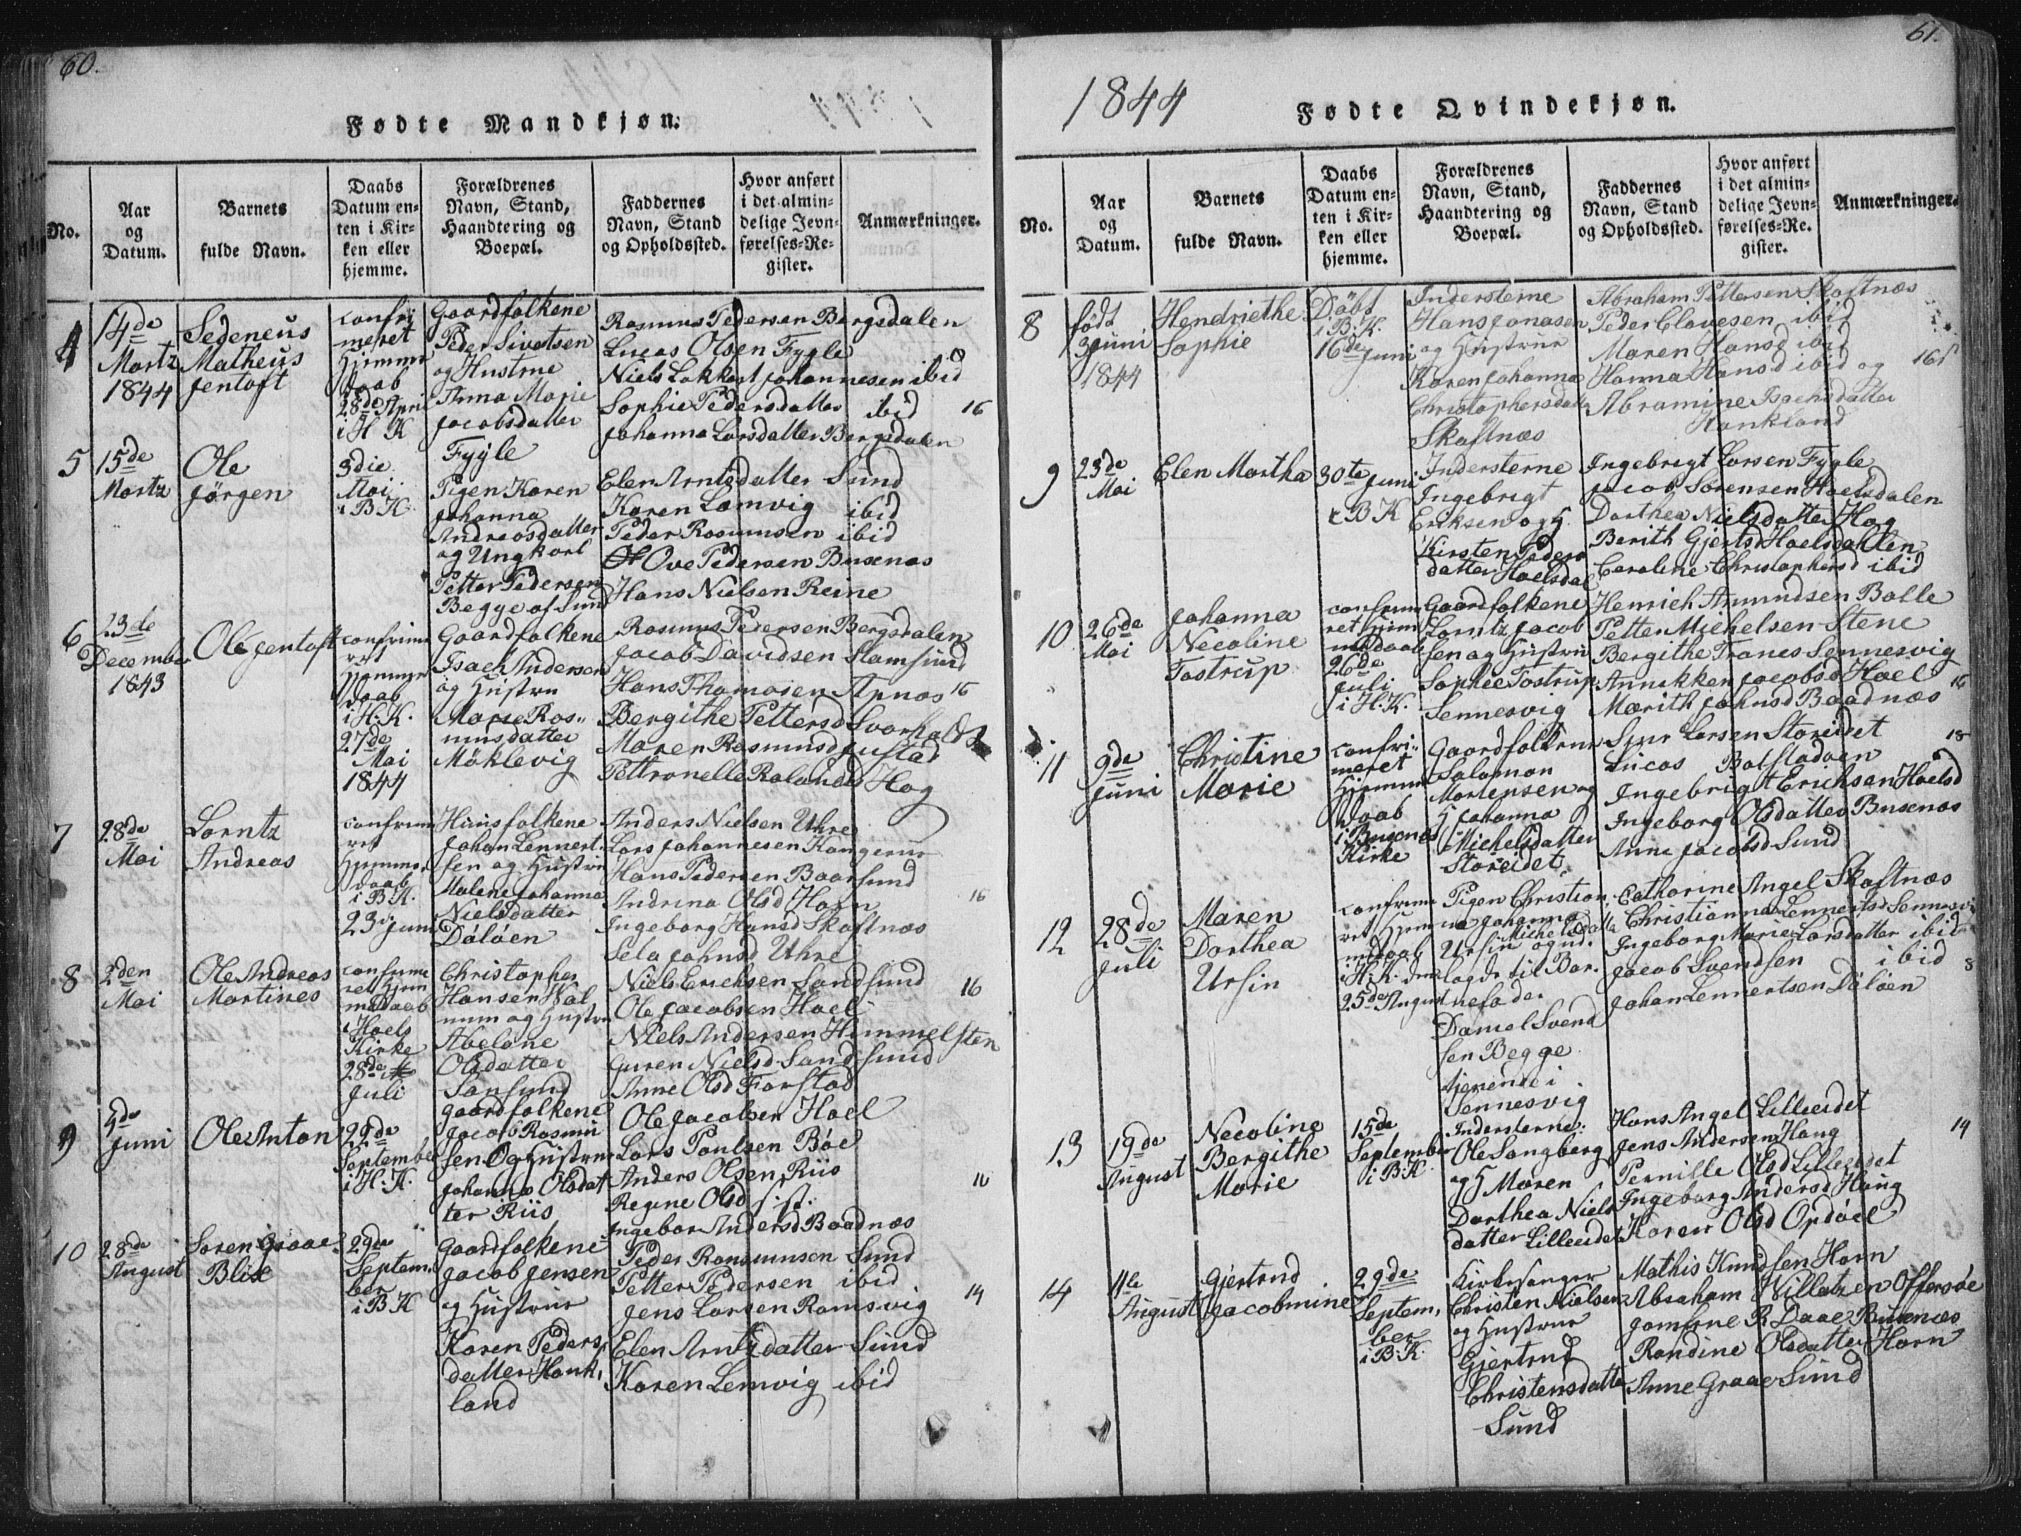 60.
Fødte Mandkjøn.
No.
Aar
og
Datum.
Barnets
fulde Navn.
Daabs
Datum en-
ten i Kir-
ken eller
hjemme.
Forældrenes
Navn, Stand,
Haandtering og
Boepæl.
Faddernes
Navn, Stand
og Opholdssted.
Hvor anført
i det almin-
delige Jevn-
førelses-Re-
gister.
Anmærkninger.
4
14de
Martz
1844
Sedeneus
Matheus
Jentoft
confir
meret
Hjemme
Daab
28de April
i H K
Gaardfolkene
Peder Sivertsen
og Hustrue
Anna Marie
Jacobsdatter
Fygle
Rasmus Pedersen Bergsdalen
Lucas Olsen Fygle
Niels Lokkert Johannesen ibid
Sophie Pedersdatter ibid
Johanna Larsdatter Bergsdalen
16
5
15de
Martz
Ole
Jörgen
3die
Mai
i B K.
Pigen Karen
Johanna
Andreasdatter
og Ungkarl
Petter Pedersen
Begge af Sund
Elen Arntsdatter Sund
Karen Lamvig ibid
Peder Rasmusen ibid
Ove Pedersen Busenæs
Hans Nielsen Reine
6
23de
December
1843
Ole Jentoft
confirme
ret
Hjemme
Daab
i H. K.
27de
Mai
1844
Gaardfolkene
Isach Andersen
og Hustru
Marie Ras-
musdatter
Möklevig
Rasmus Pedersen Bergsdalen
Jacob Davidsen Stamsund
Hans Thomasen Apnæs
Bergithe Pettersd Svarholdt
Maren Rasmusd Justad
Pettronelle Rolandsd Hag
16
7
28de
Mai
Lorntz
Andreas
confirme
ret
Hjemme
daab
i B.K.
23de Juni
Huusfolkene
Johan Lennert-
sen og Hustru
Malene Johanna
Nielsdatter
Dölöen
Anders Nielsen Uhre
Lars Johannesen Kangerur
Hans Pedersen Baarsund
Andrina Olsd Horn
Ingeborg Hansd Skaftnæs
Sela Johnsd Uhre
16
8
2den
Mai
Ole Andreas
Martines
confirme
ret Hjem
medaab
i Hoels
Kirke
28de
Juli
Christopher
Hansen Wal
num og Hustru
Abelone
Olsdatter
Sansund
Niels Erichsen Sandsund
Ole Jacobsen Hoel
Niels Andersen Himmelsten
Guren Nielsd Sandsund
Anne Olsd Farstad
16
9
5de
Juni
Ole Anton
22de
September
i H. K.
Gaardfolkene
Jacob Rasmu
sen Og Hustru
Johanna Olsdat
ter Riis
Ole Jacobsen Hoel
Lars Poulsen Böe
Anders Olsen Riis
Regine Olsd ist:
Ingebor Andersd Baadnæs
10
28de
August
Soren Graae
Blix
29de
Septem
ber
i B K
Gaardfolkene
Jacob Jensen
og Hustrue
Karen Peders
datter Hank,
land
Peder Rasmusen Sund
Petter Pedersen ibid
Jens Larsen Ramsvig
Elen Arntzdatter Sund
Karen Lemvig ibid
14
61.
1844
Fødte Qvindekjøn.
No.
Aar
og
Datum.
Barnets
fulde Navn.
Daabs
Datum en-
ten i Kir-
ken eller
hjemme.
Forældrenes
Navn, Stand,
Haandtering og
Boepæl.
Faddernes
Navn, Stand
og Opholdssted.
Hvor anført
i det almin-
delige Jevn-
førelses-Re-
gister.
Anmærkninger.
8
födt
3 Juni
1844
Hendriethe
Sophie
Döbt
i B. K.
16de Juni
Indersterne
Hans Jonasen
og Hustrue
Karen Johanna
Christophersdatter
Skaftnæs
Abraham Pettersen Skaftnæs
Peder Clavesen ibid
Maren Hansd ibid
Hanna Hansd ibid og
Abramine Isachsdatter
Hankland
161
9
23de
Mai
Elen Martha
30te Juni
i B K
Indersterne
Ingebrigt
Eriksen og H
Kirsten Peders
datter Hoelsdal
Ingebrigt Larsen Fygle
Jacob Sörensen Hoelsdalen
Dorthea Nielsdatter Hag
Berith Gjertsd Hoelsdahlen
Caroline Christophersd ibid
10
26de
Mai
Johanna
Necoline
Tostrup
confirme
ret Hjem
medaab
26de
Juli
i H. K.
Gaardfolkene
Lorntz Jacob
sen og Hustru
Sophie Tostrup
Sennesvig
Henrich Amundsen Bolle
Petter Michelsen Stene
Bergithe Tranes Sennesvig
Annikken Jacobsd Hoel
Marith Johnsd Baadnæs
16
11
9de
Juni
Christine
Marie
confir-
meret
Hjemme
Daab
i Busenæs
Kirke
Gaardfolkene
Salomon
Mortensen og
H Johanna
Michelsdatter
Storeidet
Siur Larsen Storeidet
Lucas Bolstadöen
Ingebrigt Erichsen Hoelsd
Ingeborg Olsdatter Busenæs
Anne Jacobsd Sund
18
12
28de
Juli
Maren
Dorthea
Ursin
confirme
ret Hjem
medaab
i H. K. den
25de August
Pigen Christian
na Johanna Michelsdatter
Ursin og ud
lagde til Bar-
nefader
Daniel Svend
sen Begge
tjenende i
Sennesvig
Catharine Angel Skaftnæs
Christianna Lennertsd Sennesvig
Ingeborg Marie Larsdatter ibid
Jacob Svendsen ibid
Johan Lennertsen Dölöen
8
13
19de
August
Necoline
Bergithe
Marie
15de
September
i B.K.
Indersterne
Ole Sangberg
og H Maren
Dorthea Niels
datter Lilleeidet
Hans Angel Lilleeidet
Jens Andersen Haug
Pernille Olsd Lilleeidet
Ingeborg Andersd Haug
Karen Olsd Opdoel
14
14
4de
August
Gjertrud
Jacobmine
29de
Septem,
ber
i B. K.
Kirkesanger
Christen Nielsen
og Hustrue
Gjertrud
Christensdatter
Sund
Mathis Knudsen Horn
Abraham Willatzen Offersöe
Jomfrue R Daae Busenæs
Randine Olsdatter Horn
Anne Graae Sund